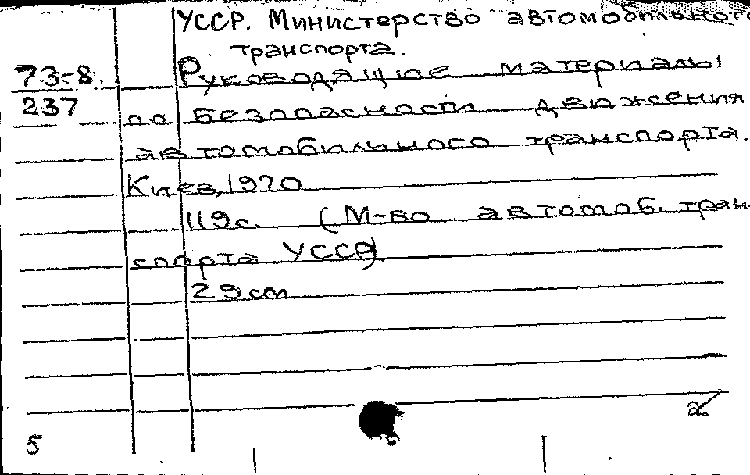 УССР. Министерство автомобильного
транспорта.
73-8 Руководящие материалы
237 по безопасности движения
автомобильного транспорта.
Киев, 1970
119с. (М-во автомоб. тран-
спорта УССР)
29 cm
5